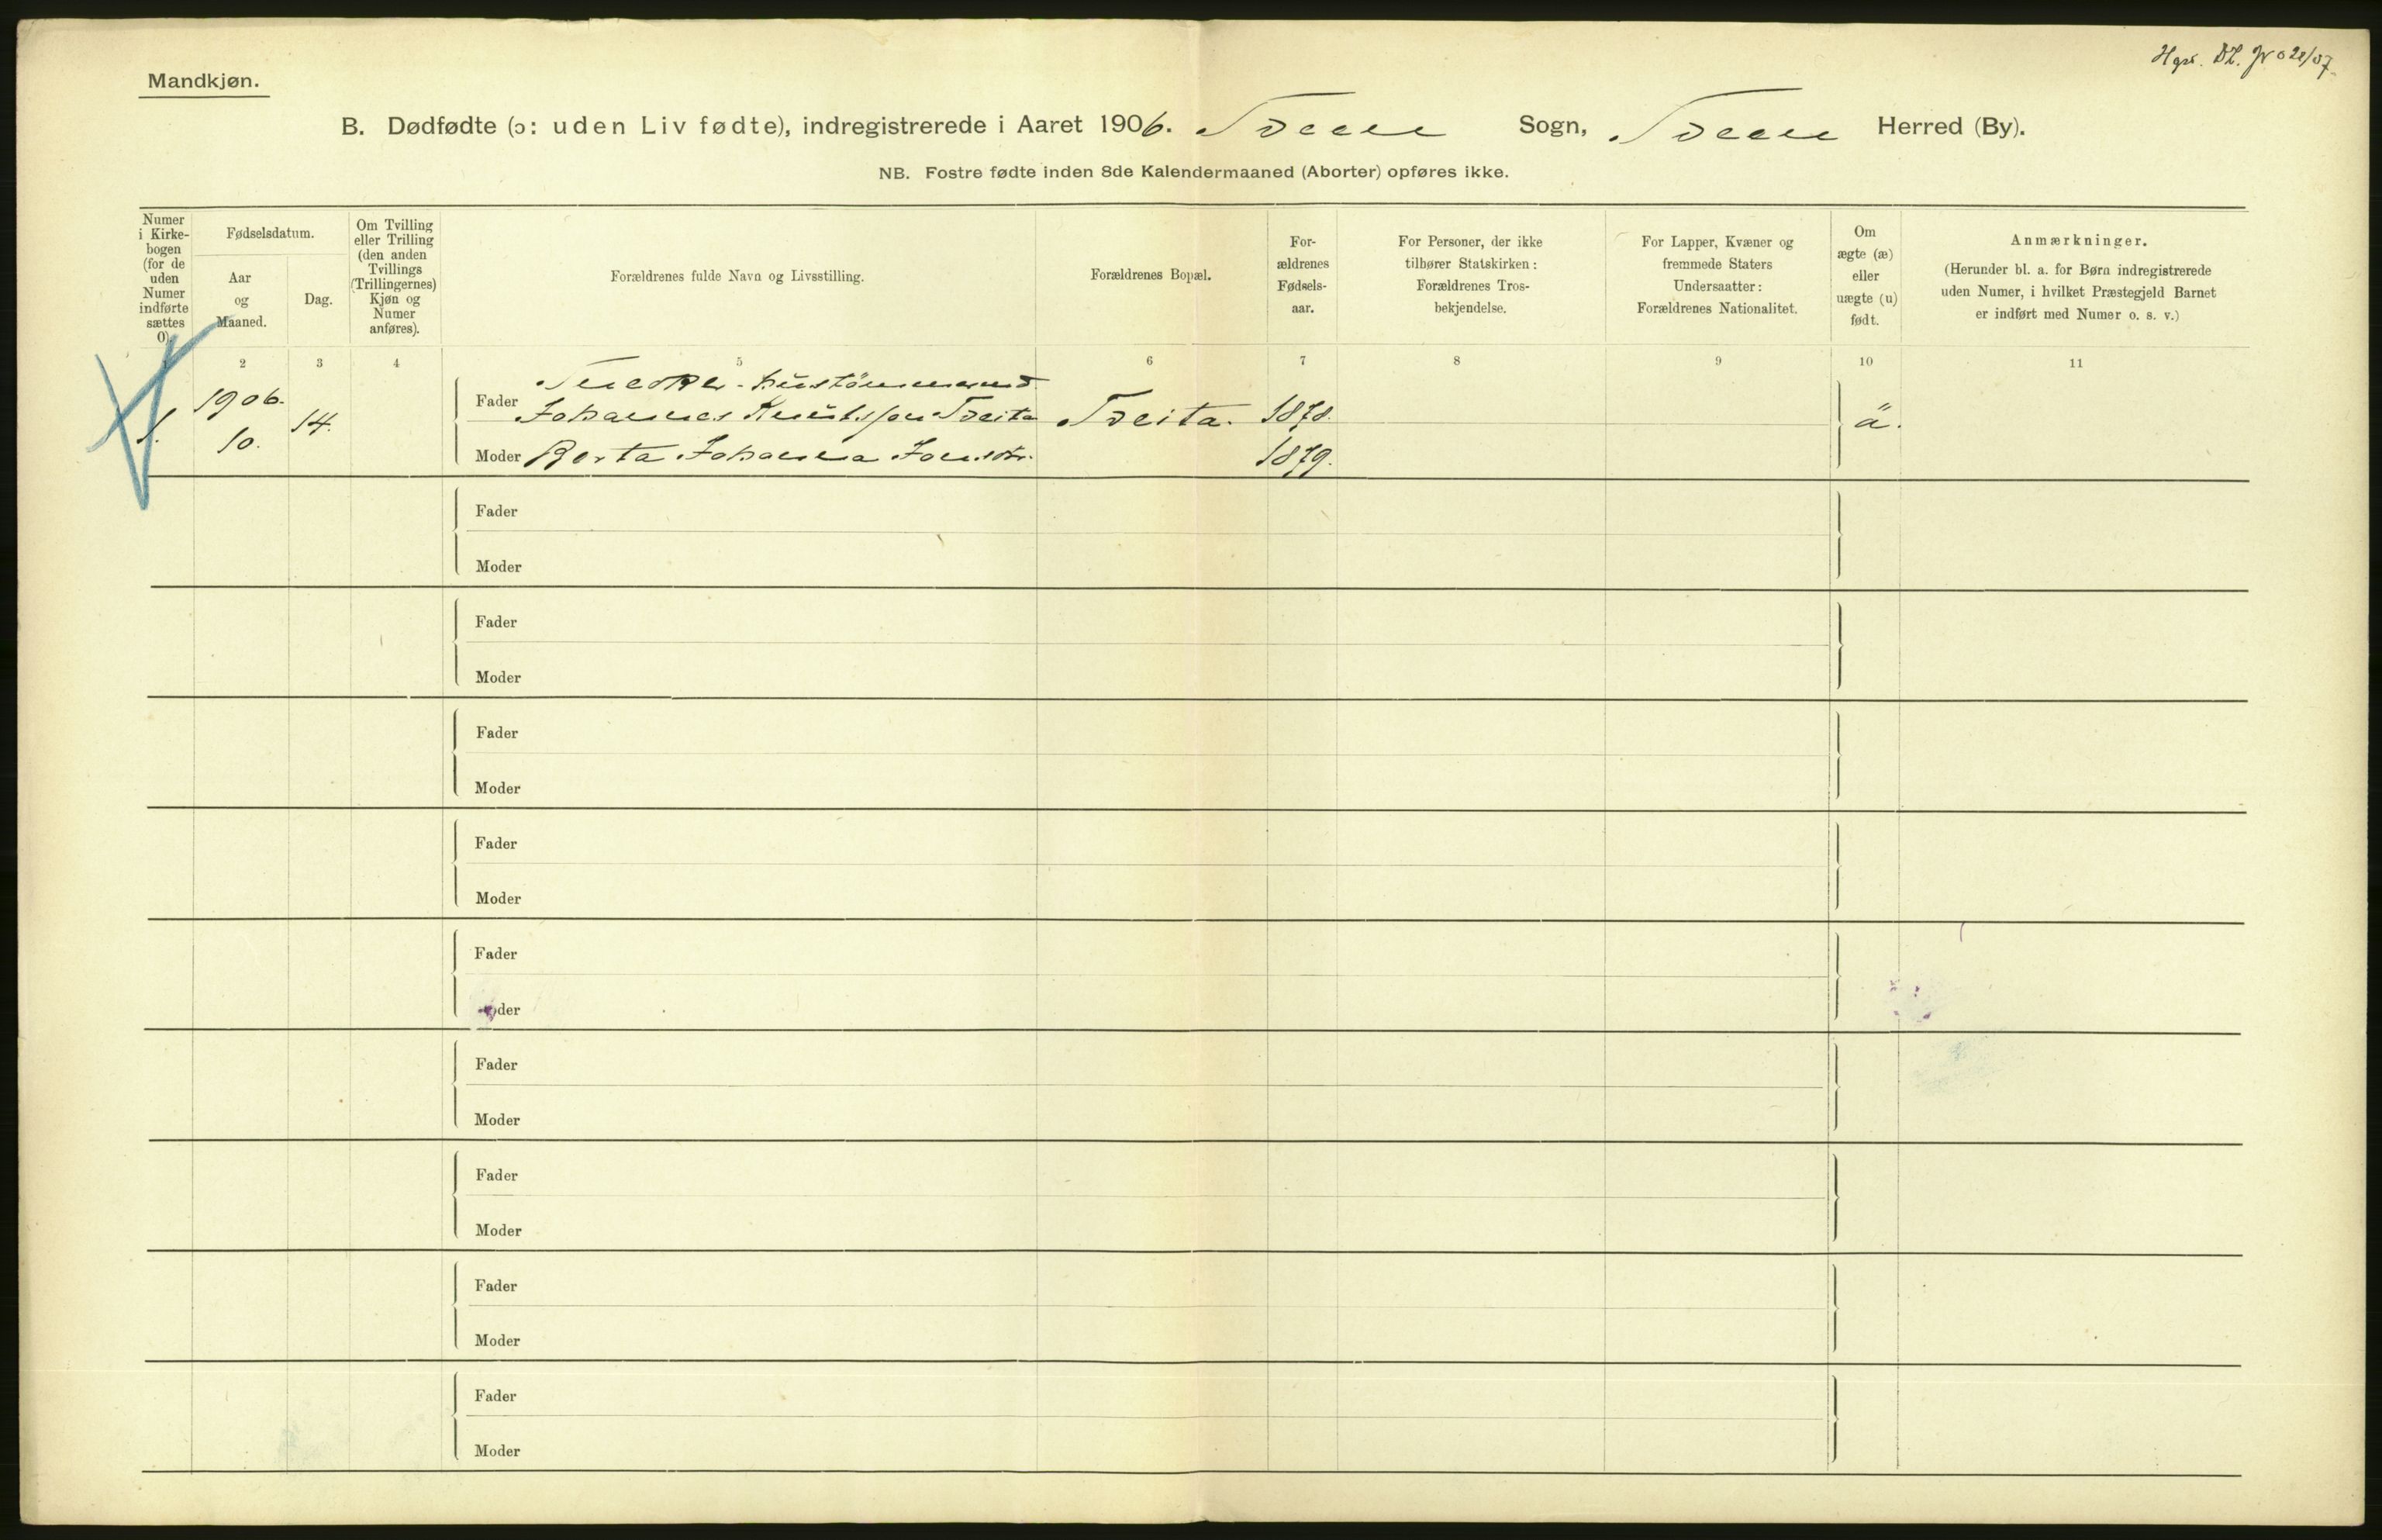 Mandkjøn.
B. Dødfødte (ɔ: uden Liv fødte), indregistrerede i Aaret 1906. Sogn, Herred (By).
NB. Fostre fødte inden 8de Kalendermaaned (Aborter) opføres ikke.
Numer i Kirke-bogen (for de uden Numer indførte sættes 0).
Fødselsdatum.
Aar og Maaned.
Dag.
Om Tvilling eller Trilling (den anden Tvillings (Trillingernes) Kjøn og Numer anføres).
Forældrenes fulde Navn og Livsstilling.
Forældrenes Bopæl.
For-ældrenes Fødsels-aar.
For Personer, der ikke tilhører Statskirken: Forældrenes Tros-bekjendelse.
For Lapper, Kvæner og fremmede Staters Undersaatter: Forældrenes Nationalitet.
Om ægte (æ) eller uægte (u) født.
Anmærkninger.
(Herunder bl. a. for Børn indregistrerede uden Numer, i hvilket Præstegjeld Barnet er indført med Numer o. s. v.)
2 3 4 5 6 7 8 9 10 11
1. 1906. 10. 14.
Fader Johannes Tveita Tveita. 1878. ä.
Moder Berta Johanna 1879.
Fader
Moder
Fader
Moder
Fader
Moder
Fader
Moder
Fader
der
Fader
Moder
Fader
Moder
Fader
Moder
Fader
Moder